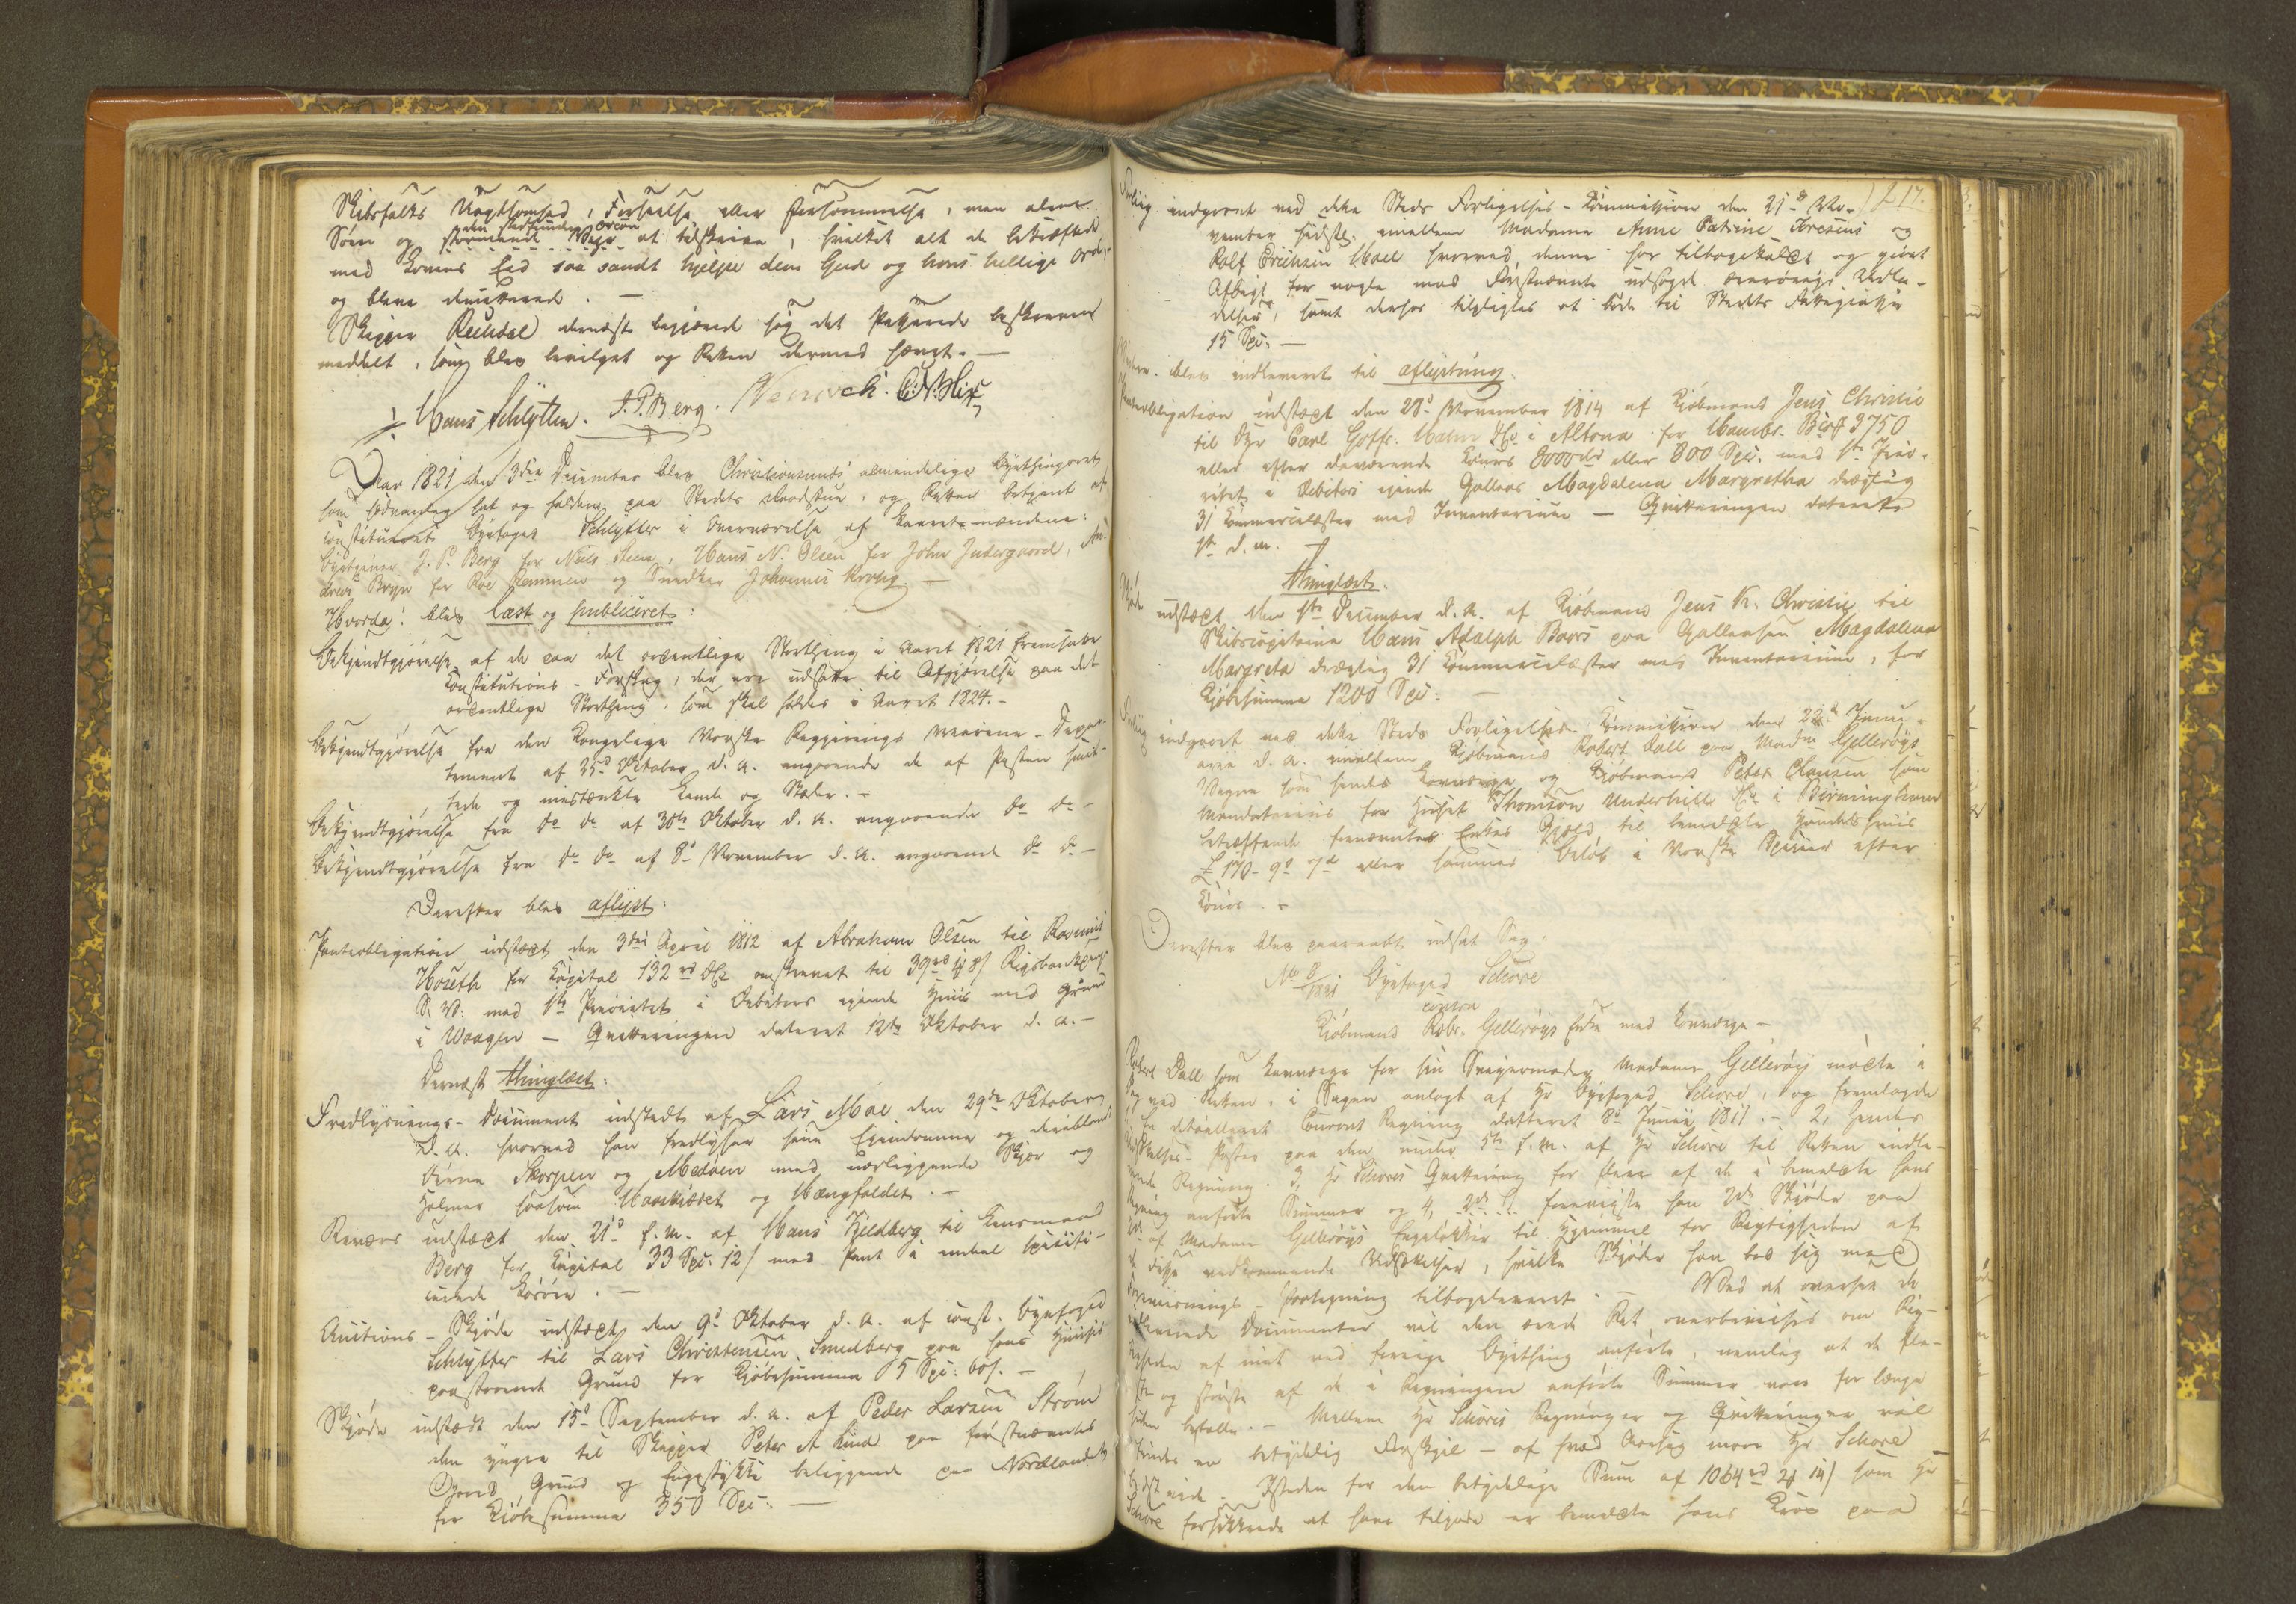 Skibsfolks Uagtsomhed, Forseelse eller Forsømmelse, men alene
den stedfundne Orcan
Søen og stormende Veir at tilskrive, hvilket alt de bekræftede
med Corens Eed saa sandt hjelpe dem Gud og hans hellige Ord,
og bleve dimitterede. —
Skipper Reusdal dernæst begjerede sig det Passerede beskreven
meddelt, som blev bevilget og Retten dermed hævet. —
Hans Schlytter. J. P. Berg.
Aar 1821 den 3die December blev Christiansunds almindelige Byething
som sædvanlig sat og holden paa Stedets Raadstue, og Retten betjent af
constitueret Byefoged Schlytter i Overværelse af Laurettemændene:
J. P. Berg for Niels Steen, Hans N. Olsen for John Indergaard, An-
dreas Bryn for Roe Remmen og Snedker Johannes
Hvorda: blev læst og publiceret:
Bekjendtgjørelse af de paa det ordentlige Storthing i Aaret 1821 fremsatte
Constitutions-Forslag, der ere udsatte til Afgjørelse paa det
ordentlige Storthing, som skal holdes i Aaret 1824. —
Bekjendtgjørelse fra den Kongelige Norske Regjerings Marine-Depar-
tement af 25d Oktober d. A. angaaende de af Pesten smit-
tede og mistænkte Lande og Stæder. —
Bekjendtgjørelse fra do do af 30te Oktober d. A. angaaende do do —
Bekjendtgjørelse fra do do af 8d November d. A. angaaende do do —
Derefter blev aflyst:
Panteobligation udstædt den 3die April 1812 af Abraham Olsen til Rasmus
Hoseth for Capital 132 rd omskrevet til 39 Rigsbankpenge
S. V. med 1te Prioritet i Debitors eiende Huus med Grund
i Vaagen — Qvitteringen dateret 12te Oktober d. A. —
Dernæst thinglæst:
Fredlysnings-Document udstedt af Lars Moe den 29de Oktober
d. A. hvorved han fredlyser sine Eiendomme og deriblandt
Øerne Skorpen og Medøen med nærliggende Skjær og
Holmer saasom og
udstædt den 21d f. M. af Hans Fjeldberg til Lensmand
Berg for Capital 33 Spd. 12 s med Pant i endeel specifi-
cerede Løsøre. —
Auctions-Skjøde udstædt den 9d Oktober d. A. af const. Byefoged
Schlytter til Lars Christensen Smedberg paa hans Huuses
paastaaende Grund for Kjøbesumma 5 Spd. 60 s. —
Skjøde udstædt den 15d September d. A. af Peder Larsen Strøm
den yngre til Skipper Peter A Lund paa førstnævntes
Gaard, Grund og Engestykke beliggende paa Nordlandet
for Kjøbesumma 350 Spd. —
f 17.
Forlig indgaaet ved dette Steds Forligelses-Commission den 21d No-
vember sidstl. imellem Madame Anne Catrine og
Rolf Erichsen Moe hvorved denne har tilbagekaldt og gjort
Afbigt for nogle mod Førstnævnte udsagte ærerørige Udla-
delser, samt derfor tilpligtes at bøde til Stedets Fattigcasse
15 Spd. —
blev indleveret til aflysning.
Panteobligation udstædt den 28d November 1814 af Kjøbmand Jens Christie
til Carl Gottfr. i Altona for Hambr. Bco 3750
eller efter daværende Cours 8000 rbd eller 800 Spd. med 1te Prio-
ritet i Debitors eiende Galleas Magdalena Margretha drægtig
31 Commercelæster med Inventarium — Qvitteringen dateret
1te d. M. —
thinglæst.
Skjøde udstædt den 1te December d. A. af Kjøbmand Jens N. Christie til
Skibscapitaine Hans Adolph paa Galleasen Magdalena
Margreta drægtig 31 Commercelæster med Inventarium, for
Kjøbesumma 1200 Spd. —
Forlig indgaaet ved dette Steds Forligelses-Commission den 22d Janu-
arii d. A. imellem Kjøbmand Robert Dall paa Madme Gellerøys
Vegne som hendes Laugværge og Kjøbmand Peter Clausen som
Mandatarius for Huset Thomson Underhill i Birmingham
betreffende førnævntes Enkes Gjeld til bemeldte Handelshuus
£ 170- 9s 7d eller sammes Beløb i Norske Species efter
Cours. —
Derefter blev paaraabt udsat Sag:
No 8/1821 Byefoged Schore
contra
Kjøbmand Robr. Gellerøys Enke med Laugværge —
Robert Dall som Laugværge for sin Svigermoder Madame Gellerøy mødte i
Dag ved Retten, i Sagen anlagt af Hr Byefoged Schore, og fremlagde
En detailleret Courant Regning datteret 8d Junii 1811. — 2, hendes
Poster paa den under 5te f. M. af Hr Schore til Retten indle-
verede Regning. 3, Hr Schores Qvittering for flere af de i bemeldte hans
Regning anførte Summer og 4, foreviiste han 2de Skjøder paa
af Madame Gellerøys Engeløkker til Hjemmel for Rigtigheden af
disse vedkommende Udskrifter, hvilke Skjøder han bad sig med
Foreviisnings-Paategning tilbageleveret. — Ved at oversee de
Documenter vil den ærede Ret overbevises om Rig-
tigheden af mit ved forrige Byething anførte, nemlig at de fle-
ste og største af de i Regningen anførte Summer var for længe
siden betalte. — Mellem Hr Schores Regninger og Qvitteringer vil
findes en betydelig Forskjel — af hvad Aarsag maae Hr Schore
bedst vide. Isteden for den betydelige Sum af 1064 rd 2 14 s som Hr
Schore forsikkrede at have tilgode er bemeldte hans Krav paa